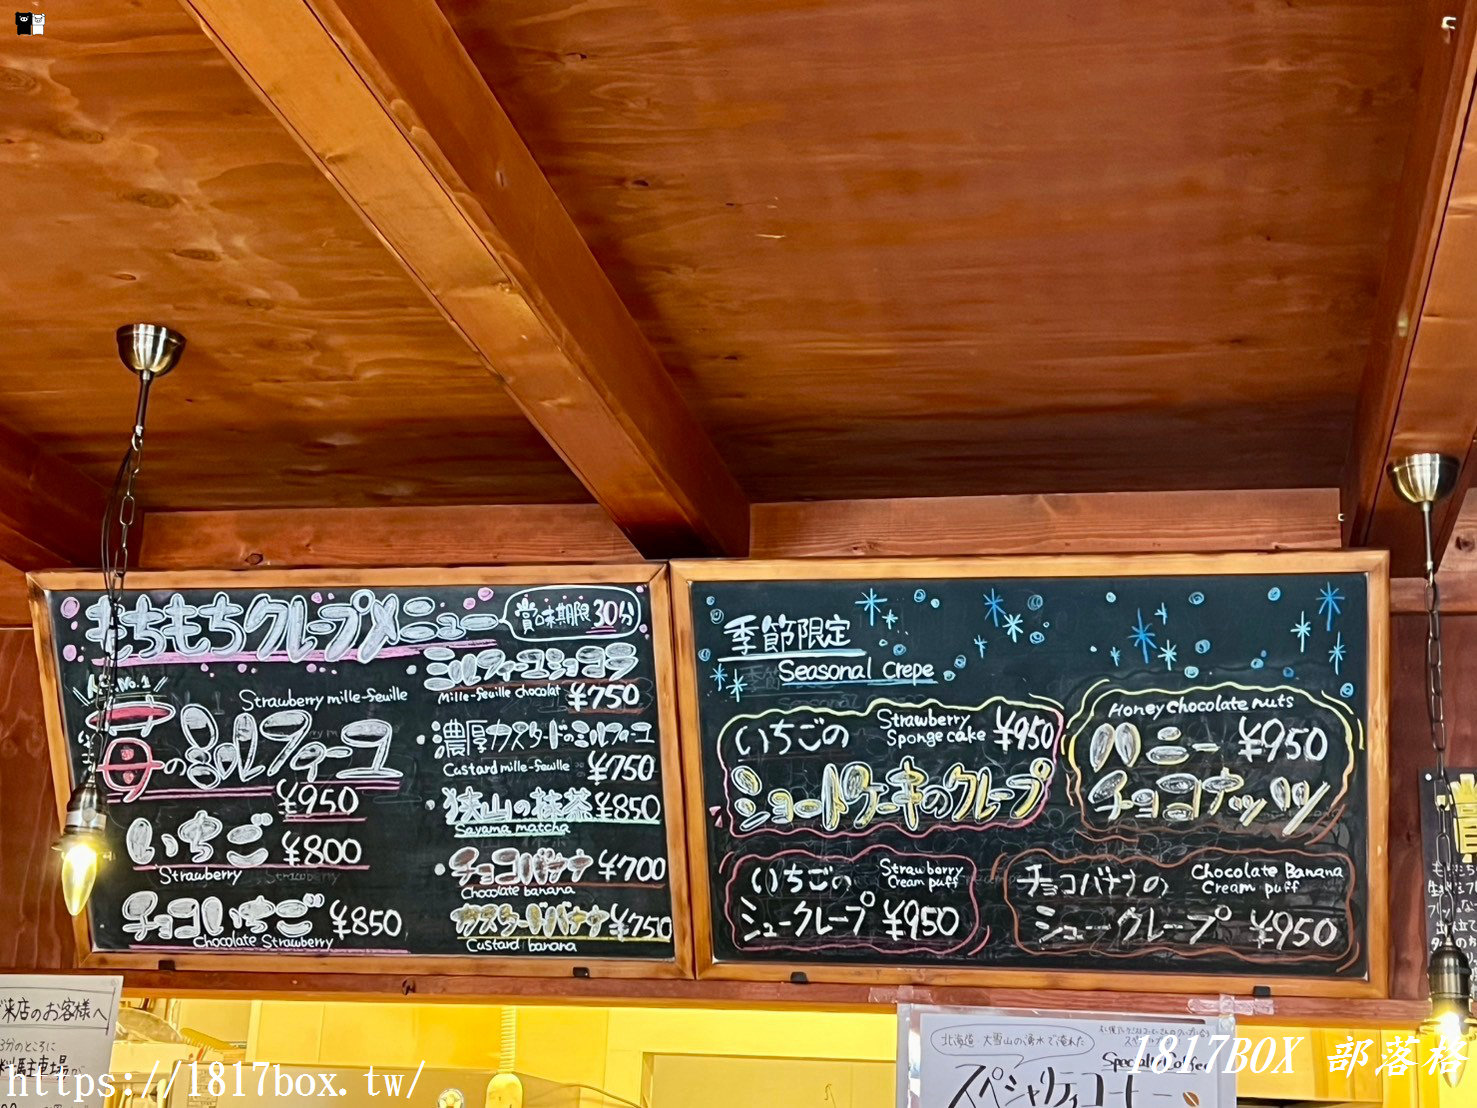 もちもちクレープメニュー
賞味期限30分
No.1
Strawberry mille-feuille
苺のミルフィーユ
¥950
いちご ¥800
Strawberry
チョコいちご ¥850
Chocolate Strawberry
ミルフィーユショコラ
Mille-feuille chocolat ¥750
濃厚カスタードのミルフィーユ
Custard mille-feuille ¥750
狭山の抹茶 ¥850
Sayama matcha
チョコバナナ ¥700
Chocolate banana
カスタードバナナ ¥750
Custard banana
季節限定
Seasonal Crepe
いちごの
Strawberry
Sponge cake
¥950
ショートケーキのクレープ
Honey chocolate nuts
ハニー ¥950
チョコナッツ
いちごの
Strawberry
Cream puff
シュークレープ ¥950
チョコバナナの
Chocolate Banana
Cream puff
シュークレープ ¥950
来店のお客様へ
3分のところに
駐車場
北海道 大雪山の湧水で淹れた
Specialty Coffee
スペシャリティコーヒー
https://1817box.tw/
1817BOX 部落格